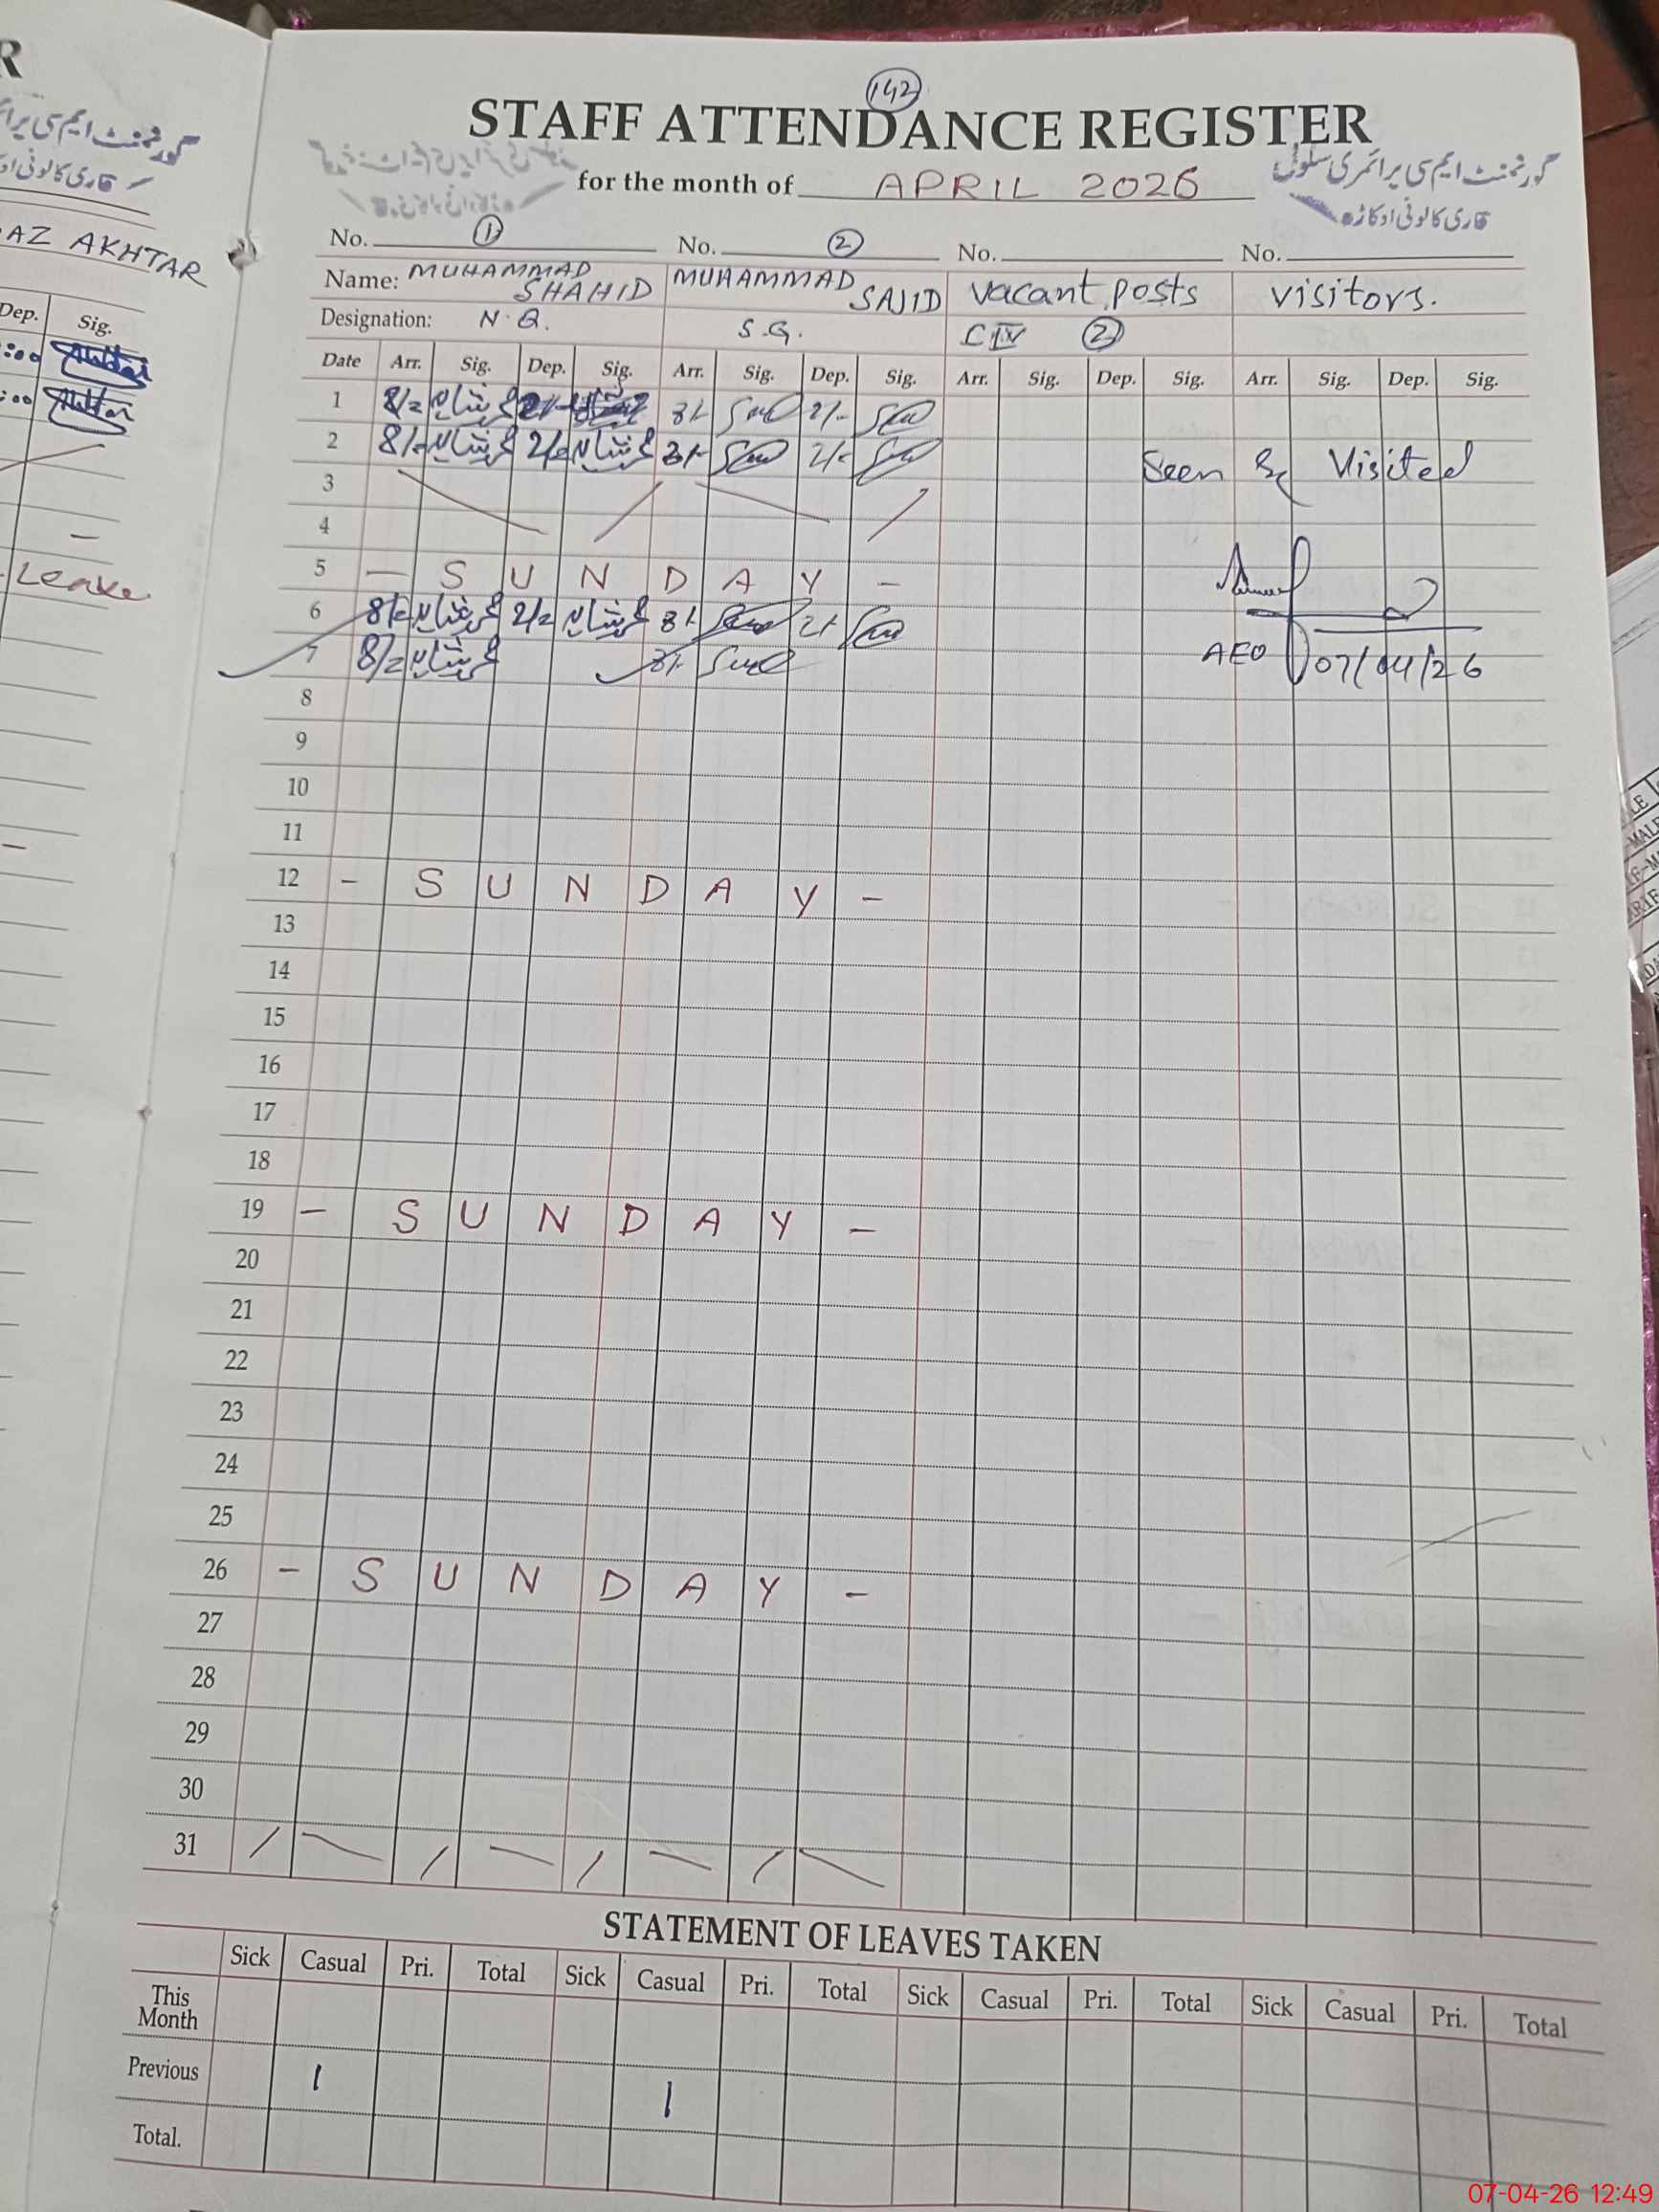 R
گورنمنٹ ایم سی پرا
قاری کالونی او
AZ AKHTAR
Dep. Sig.
:00
:00
-
Leave
-
142
STAFF ATTENDANCE REGISTER
گورنمنٹ ایم سی پرائمری سکول
for the month of APRIL 2026
قاری کالونی اوکاڑہ
No. 1 No. 2 No. No.
Name: MUHAMMAD SHAHID MUHAMMAD SAJID Vacant posts visitors.
Designation: N.Q. S.G. C IV 2
Date Arr. Sig. Dep. Sig. Arr. Sig. Dep. Sig. Arr. Sig. Dep. Sig. Arr. Sig. Dep. Sig.
1 8/= محمد شاہد 8/- 2/-
2 8/= محمد شاہد 2/= محمد شاہد 8/- 2/- Seen & Visited
3
4
5 - S U N D A Y -
6 8/= محمد شاہد 2/= محمد شاہد 8/- 2/-
7 8/= محمد شاہد 8/- AEO 07/04/26
8
9
10
11
12 - S U N D A Y -
13
14
15
16
17
18
19 - S U N D A Y -
20
21
22
23
24
25
26 - S U N D A Y -
27
28
29
30
31
STATEMENT OF LEAVES TAKEN
Sick Casual Pri. Total Sick Casual Pri. Total Sick Casual Pri. Total Sick Casual Pri. Total
This Month
Previous 1 1
Total.
07-04-26 12:49